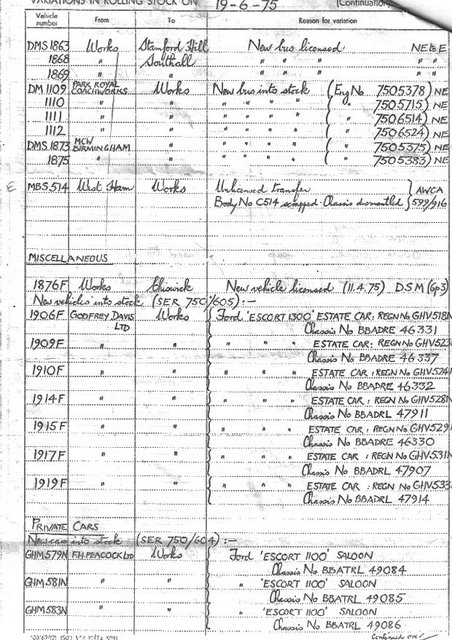 VARIATIONS IN ROLLING STOCK ON 19-6-75 (Continuation)
Vehicle number From To Reason for variation
DMS 1863 Works Stamford Hill New bus licensed NE&E
1868 " Southall " " " " "
1869 " " " " " " "
DM 1109 PARK ROYAL COACHWORKS Works New bus into stock (Eng No 7505378) NE
1110 " " " " " " ( " 7505715) NE
1111 " " " " " " ( " 7506514) NE
1112 " " " " " " ( " 7506524) NE
DMS 1873 MCW BIRMINGHAM " " " " " ( " 7505375) NE
1875 " " " " " " ( " 7505383) NE
E MBS 514 West Ham Works Unlicensed transfer } AWCA
Body No C514 scrapped. Chassis dismantled } 599/916
MISCELLANEOUS
1876F Works Chiswick New vehicle licensed (11.4.75) D.S.M (Gp3)
New vehicles into stock (SER 750/605) :-
1906F GODFREY DAVIS LTD Works Ford 'ESCORT 1300' ESTATE CAR: REGN No GHV518N
Chassis No BBADRE 46331
1909F " " " " " ESTATE CAR: REGN No GHV523
Chassis No BBADRE 46337
1910F " " " " " ESTATE CAR: REGN No GHV524
Chassis No BBADRE 46332
1914F " " " " " ESTATE CAR: REGN No GHV528
Chassis No BBADRL 47911
1915F " " " " " ESTATE CAR: REGN No GHV529
Chassis No BBADRE 46330
1917F " " " " " ESTATE CAR: REGN No GHV531N
Chassis No BBADRL 47907
1919F " " " " " ESTATE CAR: REGN No GHV533
Chassis No BBADRL 47914
PRIVATE CARS
New cars into stock (SER 750/604) :-
GHM579N F.H. PEACOCK LTD Works Ford 'ESCORT 1100' SALOON
Chassis No BBATRL 49084
GHM581N " " " 'ESCORT 1100' SALOON
Chassis No BBATRL 49085
GHM583N " " " 'ESCORT 1100' SALOON
Chassis No BBATRL 49086
Continued over